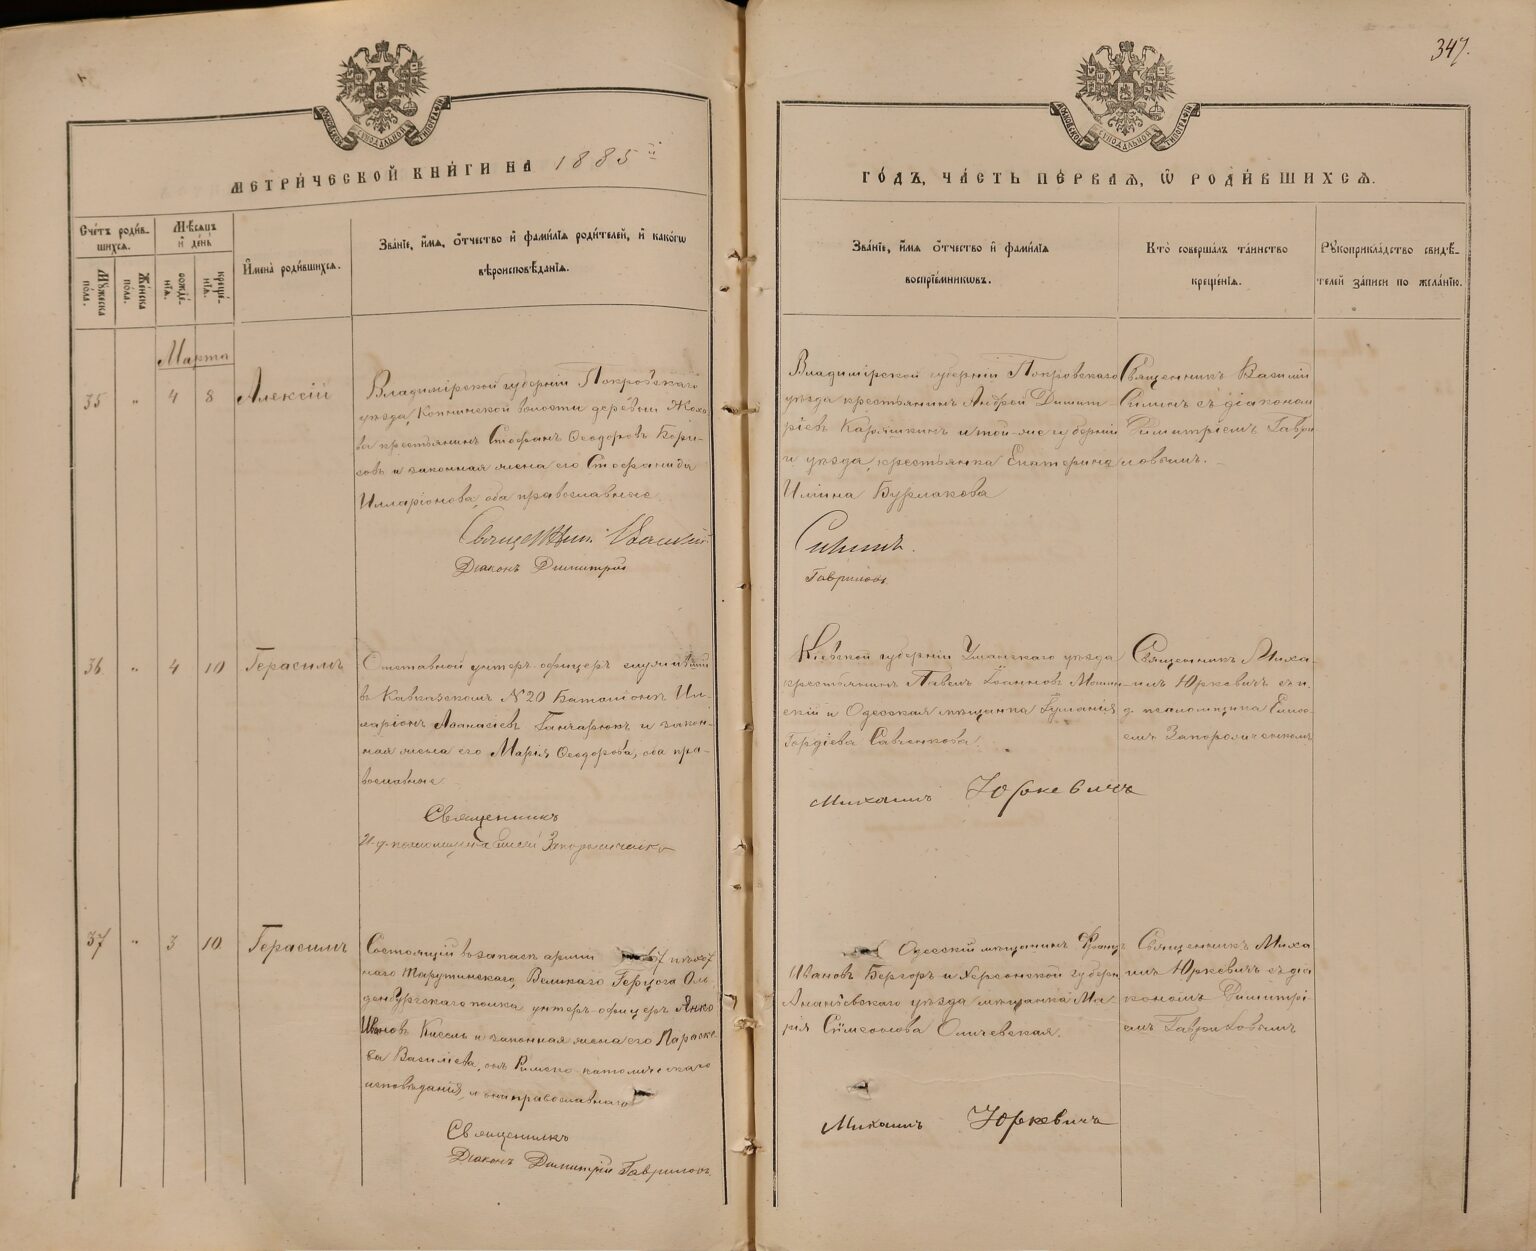 347.
МОСКОВСКОЙ СѴНОДАЛЬНОЙ ТИПОГРАФІИ
МОСКОВСКОЙ СѴНОДАЛЬНОЙ ТИПОГРАФІИ
МЕТРИ́ЧЕСКОЙ КНИ́ГИ НА 1885й
ГО́ДЪ, ЧА́СТЬ ПЕ́РВАЯ, Ѽ РОДИ́ВШИХСЯ.
Сче́тъ роди́в-
шихся.
Мꙋ́жеска по́ла.
Же́нска по́ла.
Мѣ́сяцъ и҆ де́нь
рожде́-нїя.
креще́-нїя.
И҆мена̀ роди́вшихся.
Зва́нїе, и҆́мя, ѻ҆́тчество и҆ фами́лїя роди́телей, и҆ како́гѡ
вѣроисповѣ́данїя.
Зва́нїе, и҆́мя ѻ҆́тчество и҆ фами́лїя
воспрїе́мникѡвъ.
Кто̀ соверша́лъ та́инство
креще́нїя.
Рꙋкоприкла́дство свидѣ́-
телей за́писи по жела́нїю.
Марта
35 " 4 8 Алексій
Владимірской губерніи Покровскаго
уѣзда, Копнинской волости деревни Жохо-
ва крестьянинъ Стефанъ Ѳеодоровъ Бори-
совъ и законная жена его Стефанида
Илларіонова, оба православные
Священникъ Василій
Діаконъ Димитрій
Владимірской губерніи Покровскаго
уѣзда крестьянинъ Андрей Димит-
ріевъ Карашкинъ и той-же губерніи
и уѣзда, крестьянка Екатерина
Ильина Бурлакова
Силинъ.
Гавриловъ
Священникъ Василій
Силинъ съ діакономъ
Димитріемъ Гаври-
ловымъ.
36 " 4 10 Герасимъ
Отставной унтеръ-офицеръ служившій
въ Кавказскомъ № 20 Баталіонѣ Ил-
ларіонъ Аѳанасіевъ Ганчарюкъ и закон-
ная жена его Марія Ѳеодорова, оба пра-
вославные
Священникъ
И. д. псаломщика Елисей Запорожченко
Кіевской губерніи Уманскаго уѣзда
крестьянинъ Павелъ Іоанновъ
и Одесская мѣщанка Іуліанія
Гордіева Савченкова.
Михаилъ Юркевичъ
Священникъ Миха-
илъ Юркевичъ съ и.
д. псаломщика Елисе-
емъ Запорожченкомъ
37 " 3 10 Герасимъ
Состоящій въ запасѣ арміи 67 пѣхот-
наго Тарутинскаго, Великаго Герцога Оль-
денбургскаго полка унтеръ-офицеръ Янко
Ивановъ Кисель и законная жена его Параске-
ва Василіева, онъ Римско-католическаго
исповѣданія, а она православнаго
Священникъ
Діаконъ Димитрій Гавриловъ
Одесскій мѣщанинъ Францъ
Ивановъ Бергоръ и Херсонской губерн.
Ананьевскаго уѣзда мѣщанка Ма-
рія Сѵмеонова Оличевская.
Михаилъ Юркевичъ
Священникъ Миха-
илъ Юркевичъ съ діа-
кономъ Димитрі-
емъ Гавриловымъ